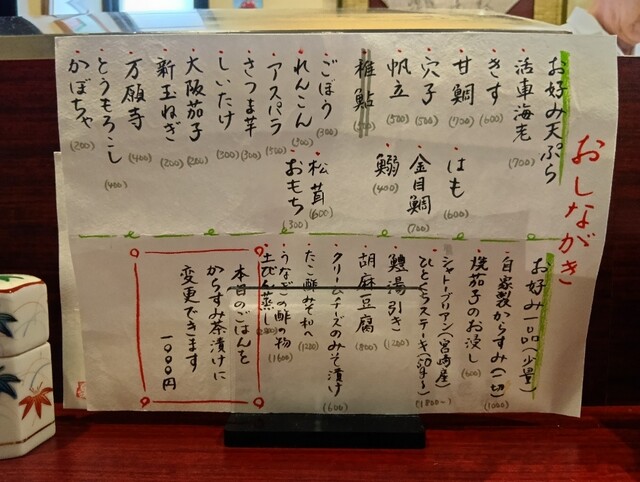 おしながき
お好み天ぷら
活車海老
(700)
きす
(600)
甘鯛
(700)
穴子
(500)
帆立
(500)
稚鮎
ごぼう
(300)
れんこん
(300)
アスパラ
(500)
さつま芋
(300)
しいたけ
(300)
大阪茄子
(200)
新玉ねぎ
(200)
万願寺
(400)
とうもろこし
(400)
かぼちゃ
(200)
はも
(600)
金目鯛
(700)
鰯
(400)
松茸
(600)
おもち
(300)
お好み一品(少量)
自家製からすみ(一切)
(1000)
焼茄子のお浸し
(600)
シャトーブリアン(宮崎産)
ひとくちステーキ(50g〜)
(1800〜)
鱧湯引き
(1200)
胡麻豆腐
(800)
クリームチーズのみそ漬け
(600)
たこ酢みそ和へ
(1200)
うなぎの酢の物
(1600)
土びん蒸し
本日のごはんを
からすみ茶漬けに
変更できます
一〇〇〇円